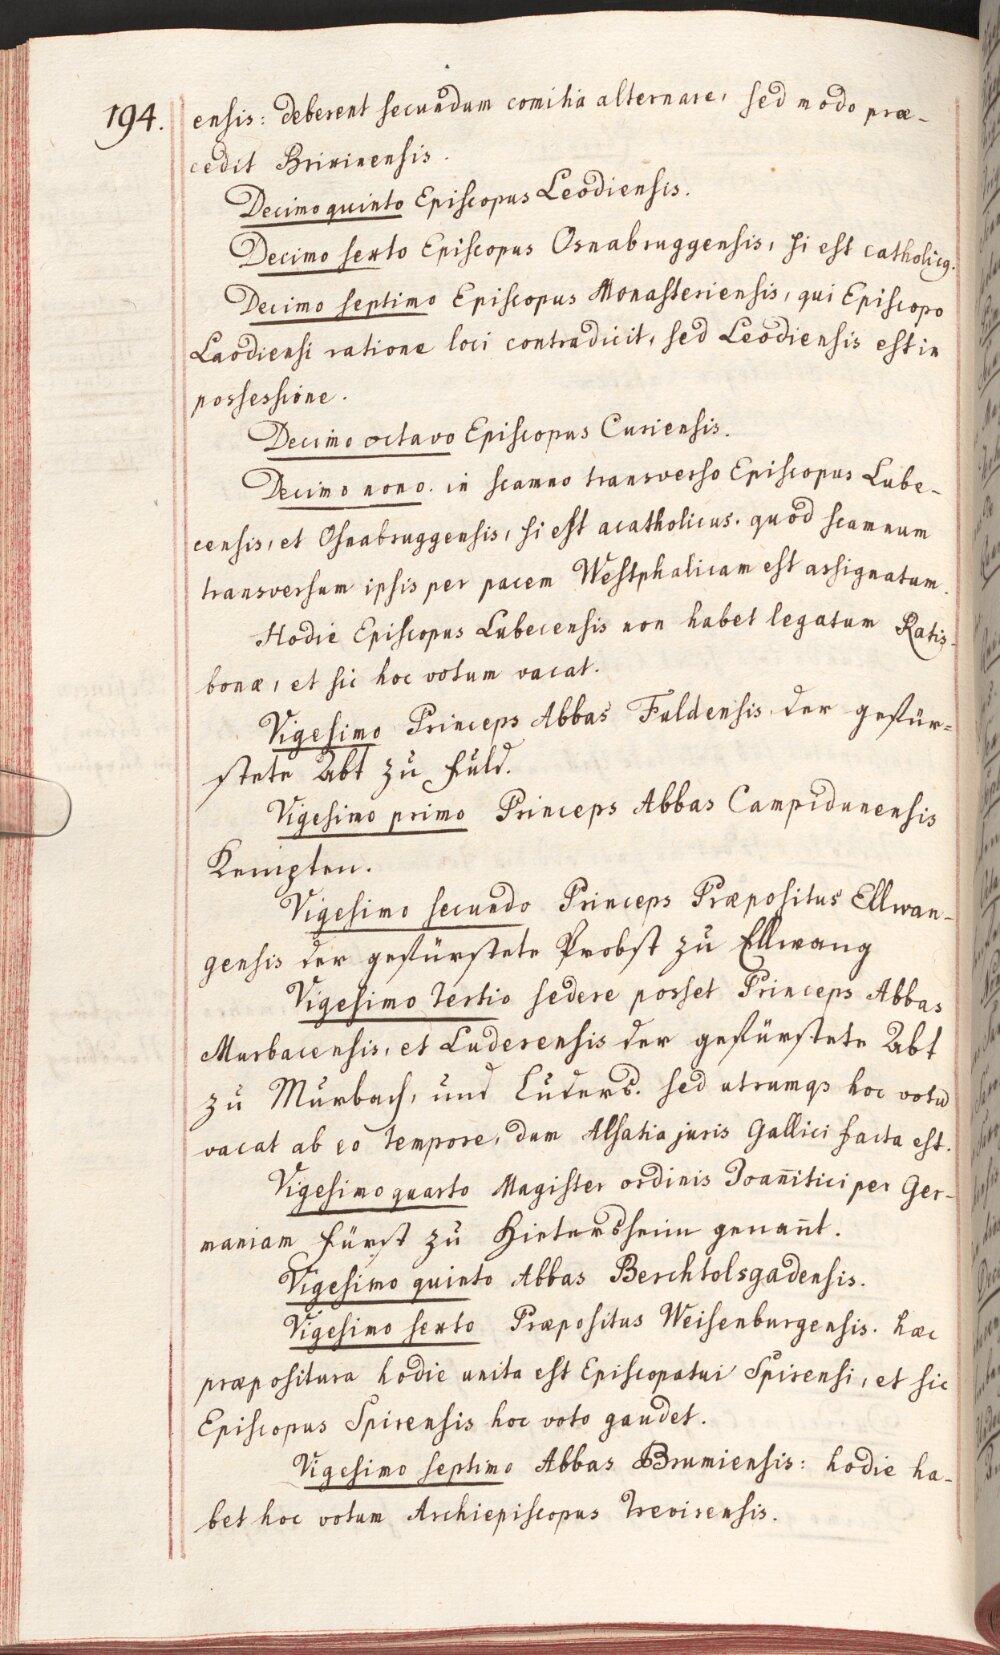 194.
ensis: deberent secundum comitia alternare, sed modo præ-
cedit Brixinensis.
Decimo quinto Episcopus Leodiensis.
Decimo sexto Episcopus Osnabruggensis, si est catholicq.
Decimo septimo Episcopus Monasteriensis, qui Episcopo
Laodiensi ratione loci contradicit, sed Leodiensis est in
possessione.
Decimo octavo Episcopus Curiensis.
Decimo nono. in scamno transverso Episcopus Lube-
censis, et Osnabruggensis, si est acatholicus. quod scamnum
transversum ipsis per pacem Westphalicam est assignatum.
Hodie Episcopus Lubecensis non habet legatum Ratis-
bonæ, et sic hoc votum vacat.
Vigesimo Princeps Abbas Fuldensis der gefür-
stete Abt zu Fuld.
Vigesimo primo Princeps Abbas Campidunensis
Kempten.
Vigesimo secundo Princeps Præpositus Ellwan-
gensis der gefürstete Probst zu Ellwang
Vigesimo tertio sedere posset Princeps Abbas
Murbacensis, et Luderensis der gefürstete Abt
zu Murbach, und Luders. sed utrumqs hoc votū
vacat ab eo tempore, dum Alsatia juris Gallici facta est.
Vigesimo quarto Magister ordinis Joan̄itici per Ger-
maniam Fürst zu Hietersheim genan̄t.
Vigesimo quinto Abbas Berchtolsgadensis.
Vigesimo sexto Præpositus Weisenburgensis. hæc
præpositura hodie unita est Episcopatui Spirensi, et sic
Episcopus Spirensis hoc voto gaudet.
Vigesimo septimo Abbas Brumiensis: hodie ha-
bet hoc votum Archiepiscopus Trevirensis.